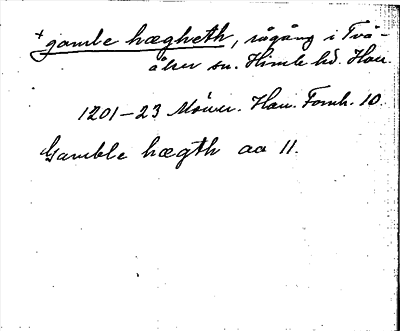 + gamle hægheth, rågång i Två-
åker sn. Himle hd. Hall.
1201–23 Mӧller. Hall. Fornh. 10.
Gamble hægth aa 11.